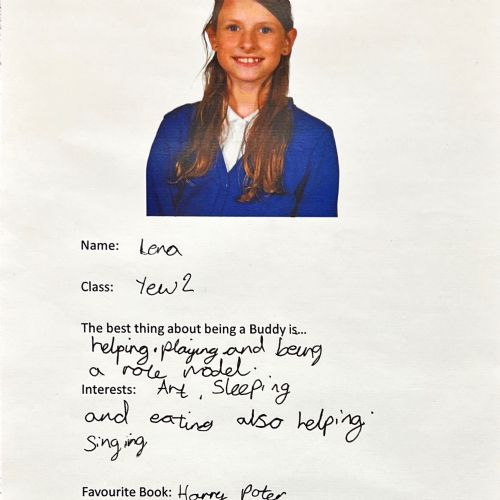 Name: Lena
Class: Yew 2
The best thing about being a Buddy is...
helping, playing and being
a role model.
Interests: Art, Sleeping
and eating also helping.
Singing
Favourite Book: Harry Poter